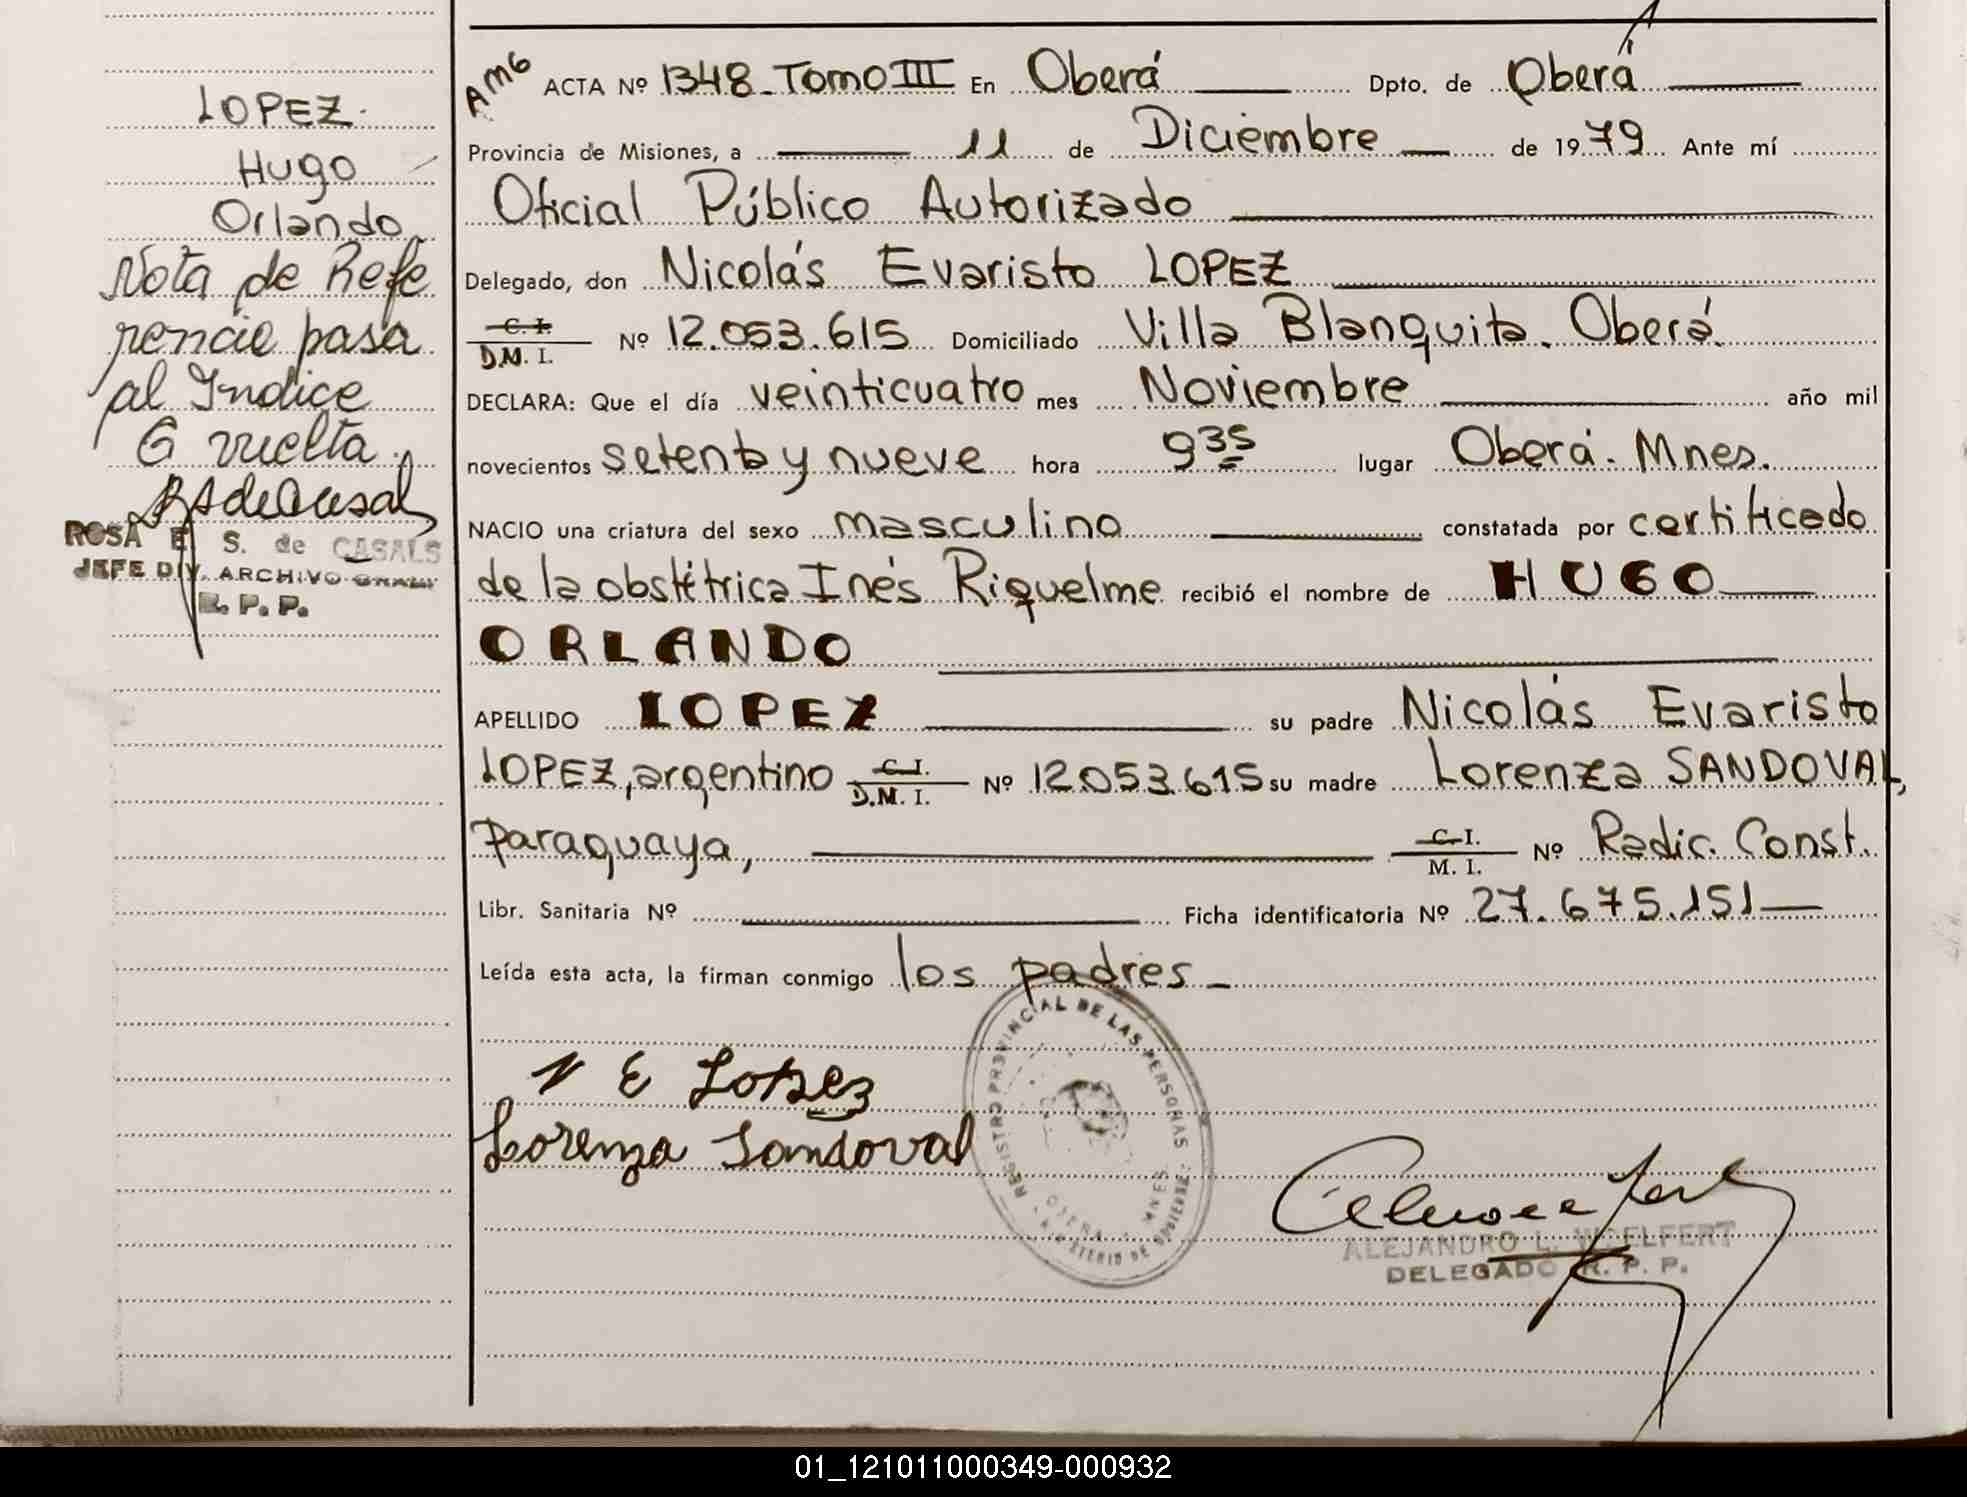 LOPEZ.
Hugo
Orlando
Nota de Refe
rencie pasa
al Indice
6 vuelta.
ROSA E. S. de CASALS
JEFE DIV. ARCHIVO GRAL.
R. P. P.
AMG
ACTA Nº 1348_ Tomo III En Oberá Dpto. de Oberá
Provincia de Misiones, a 11 de Diciembre de 1979 Ante mí
Oficial Público Autorizado
Delegado, don Nicolás Evaristo LOPEZ
C. I.
D.M. I. Nº 12.053.615 Domiciliado Villa Blanquita. Oberá.
DECLARA: Que el día veinticuatro mes Noviembre año mil
novecientos setenta y nueve hora 9 35 lugar Oberá. Mnes.
NACIO una criatura del sexo masculino constatada por certificado
de la obstétrica Inés Riquelme recibió el nombre de HUGO
ORLANDO
APELLIDO LOPEZ su padre Nicolás Evaristo
LOPEZ, argentino C. I. D.M. I. Nº 12.053.615 su madre Lorenza SANDOVAL,
paraguaya, C. I. M. I. Nº Radic. Const.
Libr. Sanitaria Nº Ficha identificatoria Nº 27.675.151
Leída esta acta, la firman conmigo los padres_
N E Lopez
Lorenza Sandoval
REGISTRO PROVINCIAL DE LAS PERSONAS
OBERA - MNES.
DE GOBIERNO
ALEJANDRO L. WOELFERT
DELEGADO R. P. P.
01_121011000349-000932